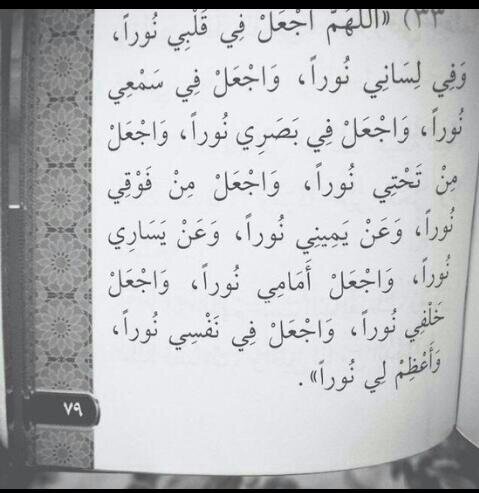 ٣٣) «اللَّهُمَّ اجْعَلْ فِي قَلْبِي نُوراً،
وَفِي لِسَانِي نُوراً، وَاجْعَلْ فِي سَمْعِي
نُوراً، وَاجْعَلْ فِي بَصَرِي نُوراً، وَاجْعَلْ
مِنْ تَحْتِي نُوراً، وَاجْعَلْ مِنْ فَوْقِي
نُوراً، وَعَنْ يَمِينِي نُوراً، وَعَنْ يَسَارِي
نُوراً، وَاجْعَلْ أَمَامِي نُوراً، وَاجْعَلْ
خَلْفِي نُوراً، وَاجْعَلْ فِي نَفْسِي نُوراً،
وَأَعْظِمْ لِي نُوراً».
٧٩